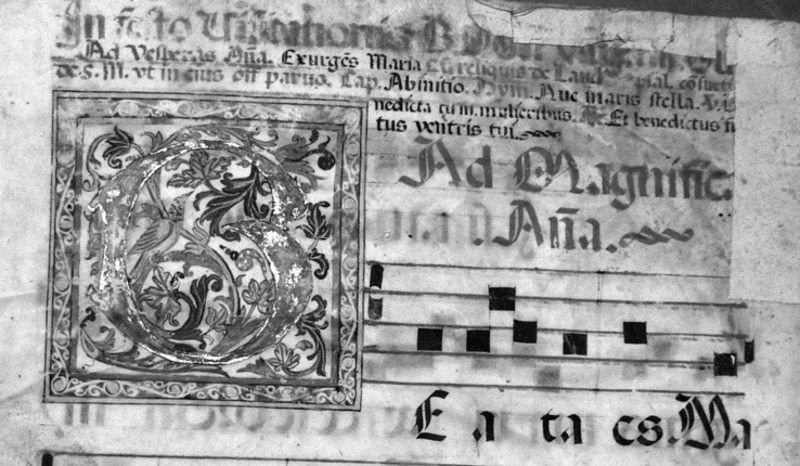 In festo Visitationis B
Ad Vesperas Aña. Exurgēs Maria Cū reliquis de Laud
de S. M. vt in eius off paruo. Cap. Ab initio. Hym. Aue maris stella. V.
nedicta tu in mulieribus. Et benedictus fr
tus ventris tui.
Ad Magnific.
Aña.
B E a ta es Ma